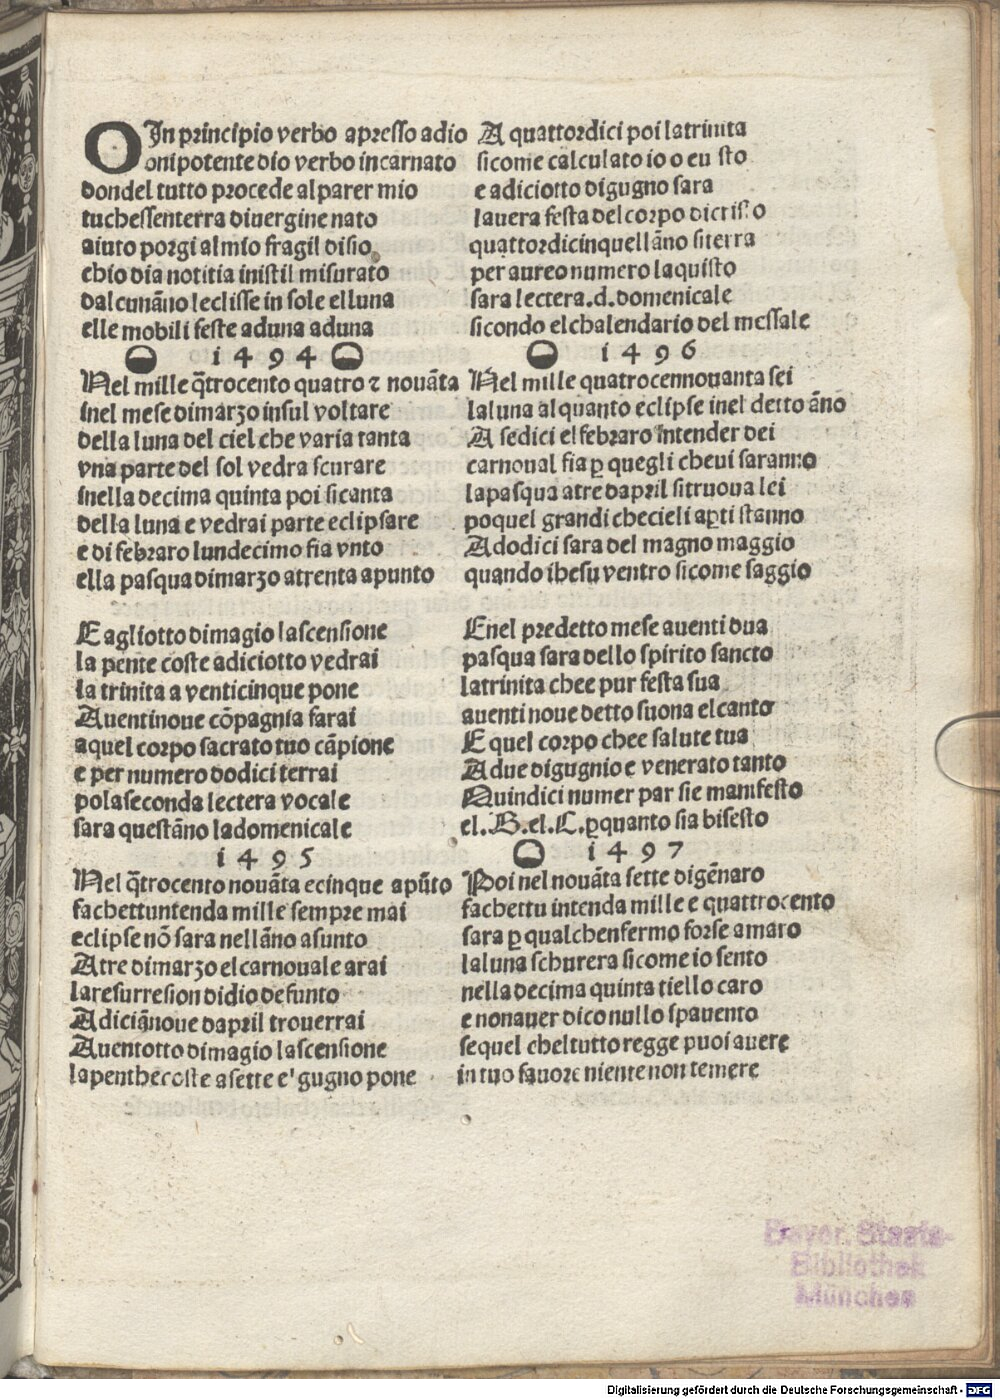 O In principio verbo apresso adio
onipotente dio verbo incarnato
dondel tutto procede al parer mio
tuchessenterra diuergine nato
aiuto porgi al mio fragil disio
chio dia notitia inistil misurato
dalcunãno leclisse in sole elluna
elle mobili feste aduna aduna
1494
Nel mille q̃trocento quatro ⁊ nouãta
inel mese dimarzo insul voltare
della luna del ciel che varia tanta
vna parte del sol vedra scurare
inella decima quinta poi sicanta
della luna e vedrai parte eclipsare
e di febraro lundecimo fia vnto
ella pasqua dimarzo atrenta apunto
E agliotto dimagio lascensione
la pente coste adiciotto vedrai
la trinita a venticinque pone
A uentinoue cõpagnia farai
aquel corpo sacrato tuo cãpione
e per numero dodici terrai
pola seconda lectera vocale
sara questãno ladomenicale
1495
Nel q̃trocento nouãta ecinque apũto
fachettuntenda mille sempre mai
eclipse nõ sara nellãno asunto
A tre dimarzo el carnouale arai
laresurresion didio defunto
A diciãnoue dapril trouerrai
A uentotto dimagio lascensione
lapenthecoste asette e' gugno pone
A quattordici poi latrinita
sicome calculato io o eu sto
e adiciotto digugno sara
lauera festa del corpo dicristo
quattordicinquellãno siterra
per aureo numero laquisto
sara lectera .d. domenicale
sicondo elchalendario del messale
1496
Nel mille quatrocennouanta sei
laluna alquanto eclipse inel detto ãno
A sedici el febraro intender dei
carnoual fia ꝑ quegli cheui saranno
lapasqua atre dapril sitruoua lei
poquel grandi checieli aꝑti stanno
A dodici sara del magno maggio
quando ihesu ventro sicome saggio
E nel predetto mese auenti dua
pasqua sara dello spirito sancto
latrinita chee pur festa sua
auenti noue detto suona el canto
E quel corpo chee salute tua
A due digugnio e venerato tanto
Quindici numer par sie manifesto
el .B. el .C. ꝑquanto sia bisesto
1497
Poi nel nouãta sette digẽnaro
fachettu intenda mille e quattrocento
sara ꝑ qualchenfermo forse amaro
laluna schurera sicome io sento
nella decima quinta tiello caro
e nonauer dico nullo spauento
sequel cheltutto regge puoi auere
in tuo fauore niente non temere
Bayer. Staats-
Bibliothek
München
Digitalisierung gefördert durch die Deutsche Forschungsgemeinschaft - DFG